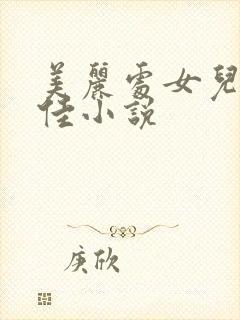 美麗處女兒
佳小說
庚欣